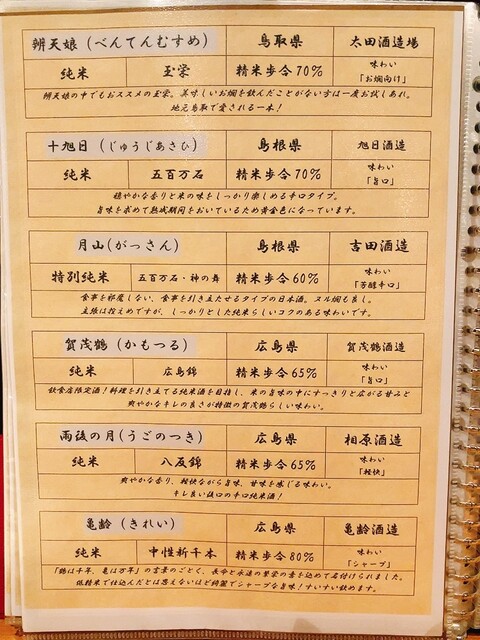 辨天娘（べんてんむすめ） 鳥取県 太田酒造場
純米 玉栄 精米歩合70% 味わい「お燗向け」
辨天娘の中でもおススメの玉栄。美味しいお燗を飲んだことがない方は一度お試しあれ。
地元鳥取で愛される一本！
十旭日（じゅうじあさひ） 島根県 旭日酒造
純米 五百万石 精米歩合70% 味わい「旨口」
穏やかな香りと米の味をしっかり楽しめる辛口タイプ。
旨味を求めて熟成期間をおいているため黄金色になっています。
月山(がっさん) 島根県 吉田酒造
特別純米 五百万石・神の舞 精米歩合60% 味わい「芳醇辛口」
食事を邪魔しない、食事を引き立たせるタイプの日本酒。ヌル燗も良し。
主張は控えめですが、しっかりとした純米らしいコクのある味わいです。
賀茂鶴（かもつる） 広島県 賀茂鶴酒造
純米 広島錦 精米歩合65% 味わい「旨口」
飲食店限定酒！料理を引き立てる純米酒を目指し、米の旨味の中にすっきりと広がる甘みと
爽やかなキレの良さが特徴の賀茂鶴らしい味わい。
雨後の月(うごのつき) 広島県 相原酒造
純米 八反錦 精米歩合65% 味わい「軽快」
爽やかな香り、軽快ながら旨味、甘味を感じる味わい。
キレ良い後口の辛口純米酒！
亀齢（きれい） 広島県 亀齢酒造
純米 中性新千本 精米歩合80% 味わい「シャープ」
「鶴は千年、亀は万年」の言葉のごとく、長命と永遠の繁栄の意を込めて名付けられました。
低精米で仕込んだとは思えないほど綺麗でシャープな旨味！すいすい飲めます。